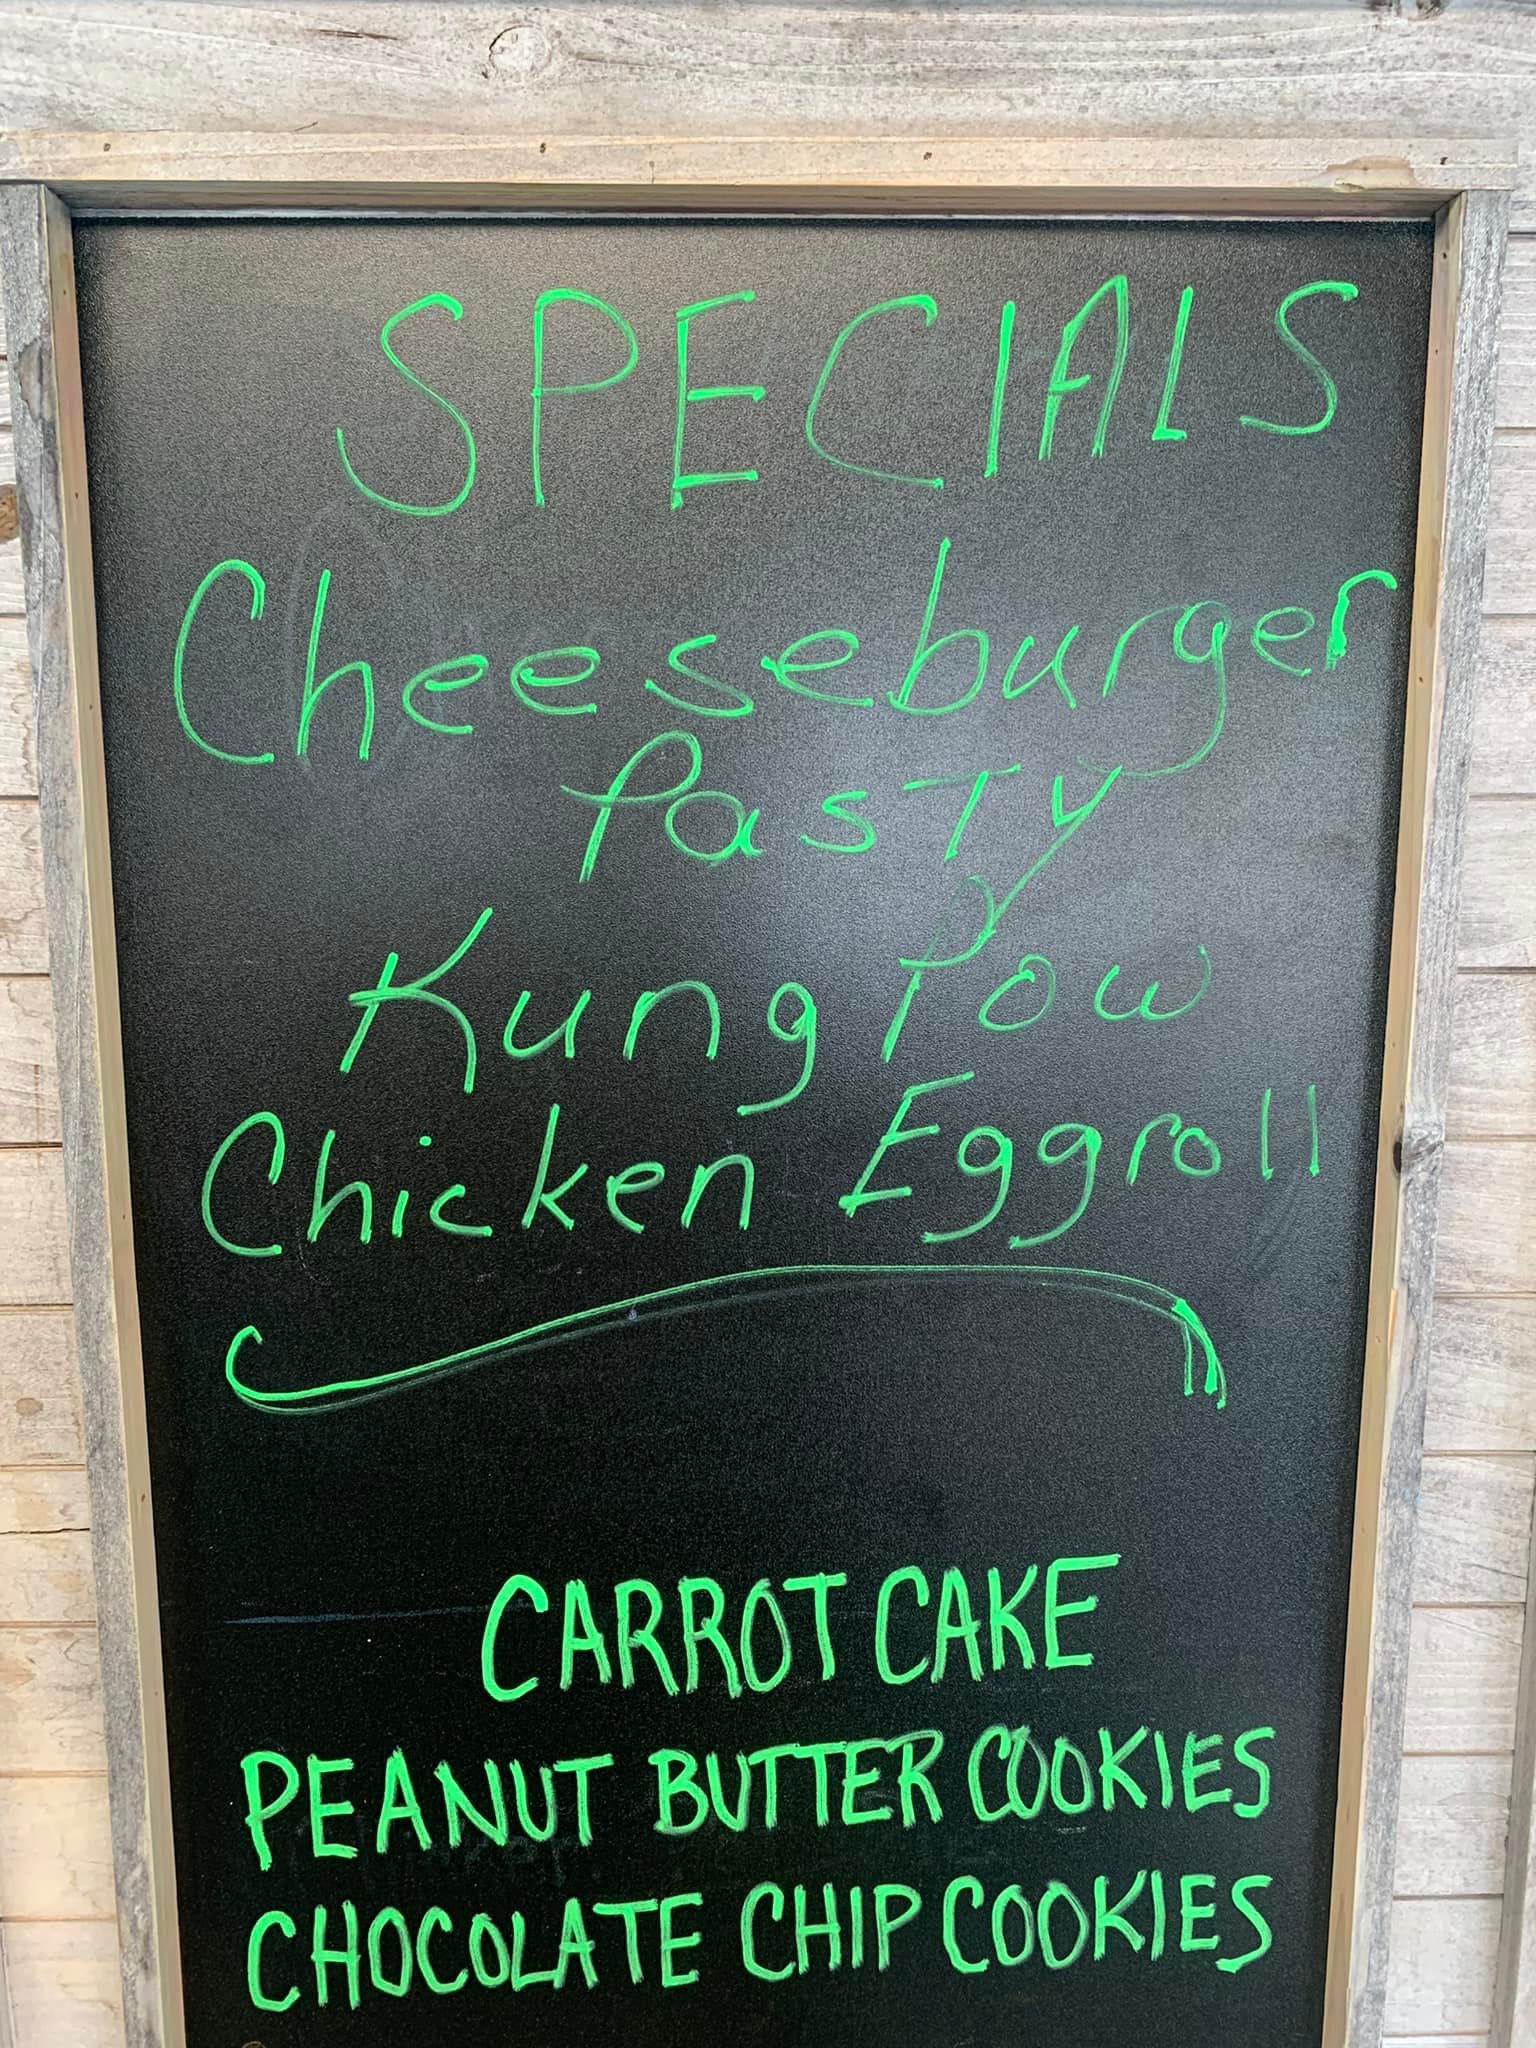 SPECIALS
Cheeseburger
Pasty
Kung Pow
Chicken Eggroll
CARROT CAKE
PEANUT BUTTER COOKIES
CHOCOLATE CHIP COOKIES